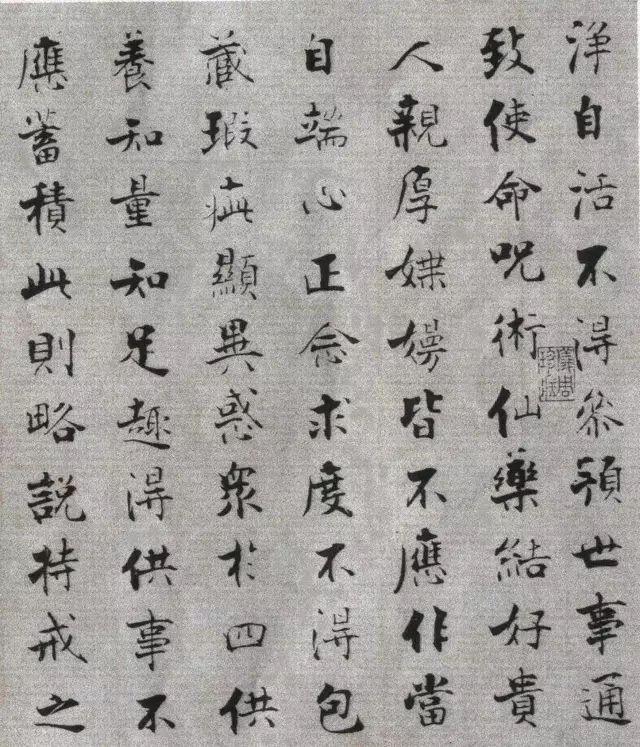 淨自活不得參預世事通
致使命呪術仙藥結好貴
人親厚媟嫚皆不應作當
自端心正念求度不得包
藏瑕疵顯異惑眾於四供
養知量知足趣得供事不
應蓄積此則略說持戒之